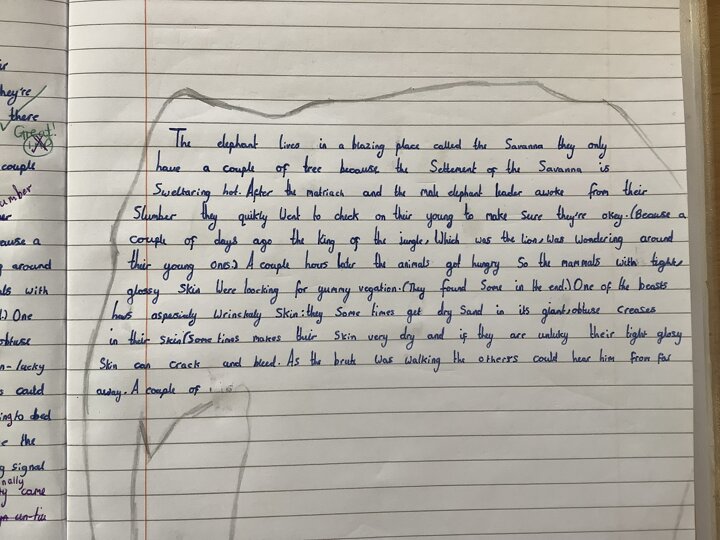 hey're
there
Great!
couple
umber
ause a
around
ls with
One
obtuse
n-lucky
could
ing to bed
e the
g signal
nally
came
un-til
The elephant lives in a blazing place called the Savanna they only
have a couple of tree because the Settlement of the Savanna is
Sweltaring hot. After the matriach and the male elephant leader awoke from their
Slumber they quikly Went to check on their young to make Sure they're okey. (Because a
couple of days ago the king of the jungle, Which was the lion, Was Wondering around
their young ones.) A couple hours later the animals got hungry So the mammals with tight,
glossy Skin Were loocking for gummy vegation. (They found Some in the end.) One of the beasts
has aspecialy Wrinckaly Skin: they Some times get dry Sand in its giant, obtuse creases
in their Skin (Some times makes their Skin very dry and if they are unluky their tight glosy
Skin can crack and bleed. As the brute Was Walking the others could hear him from far
away. A couple of